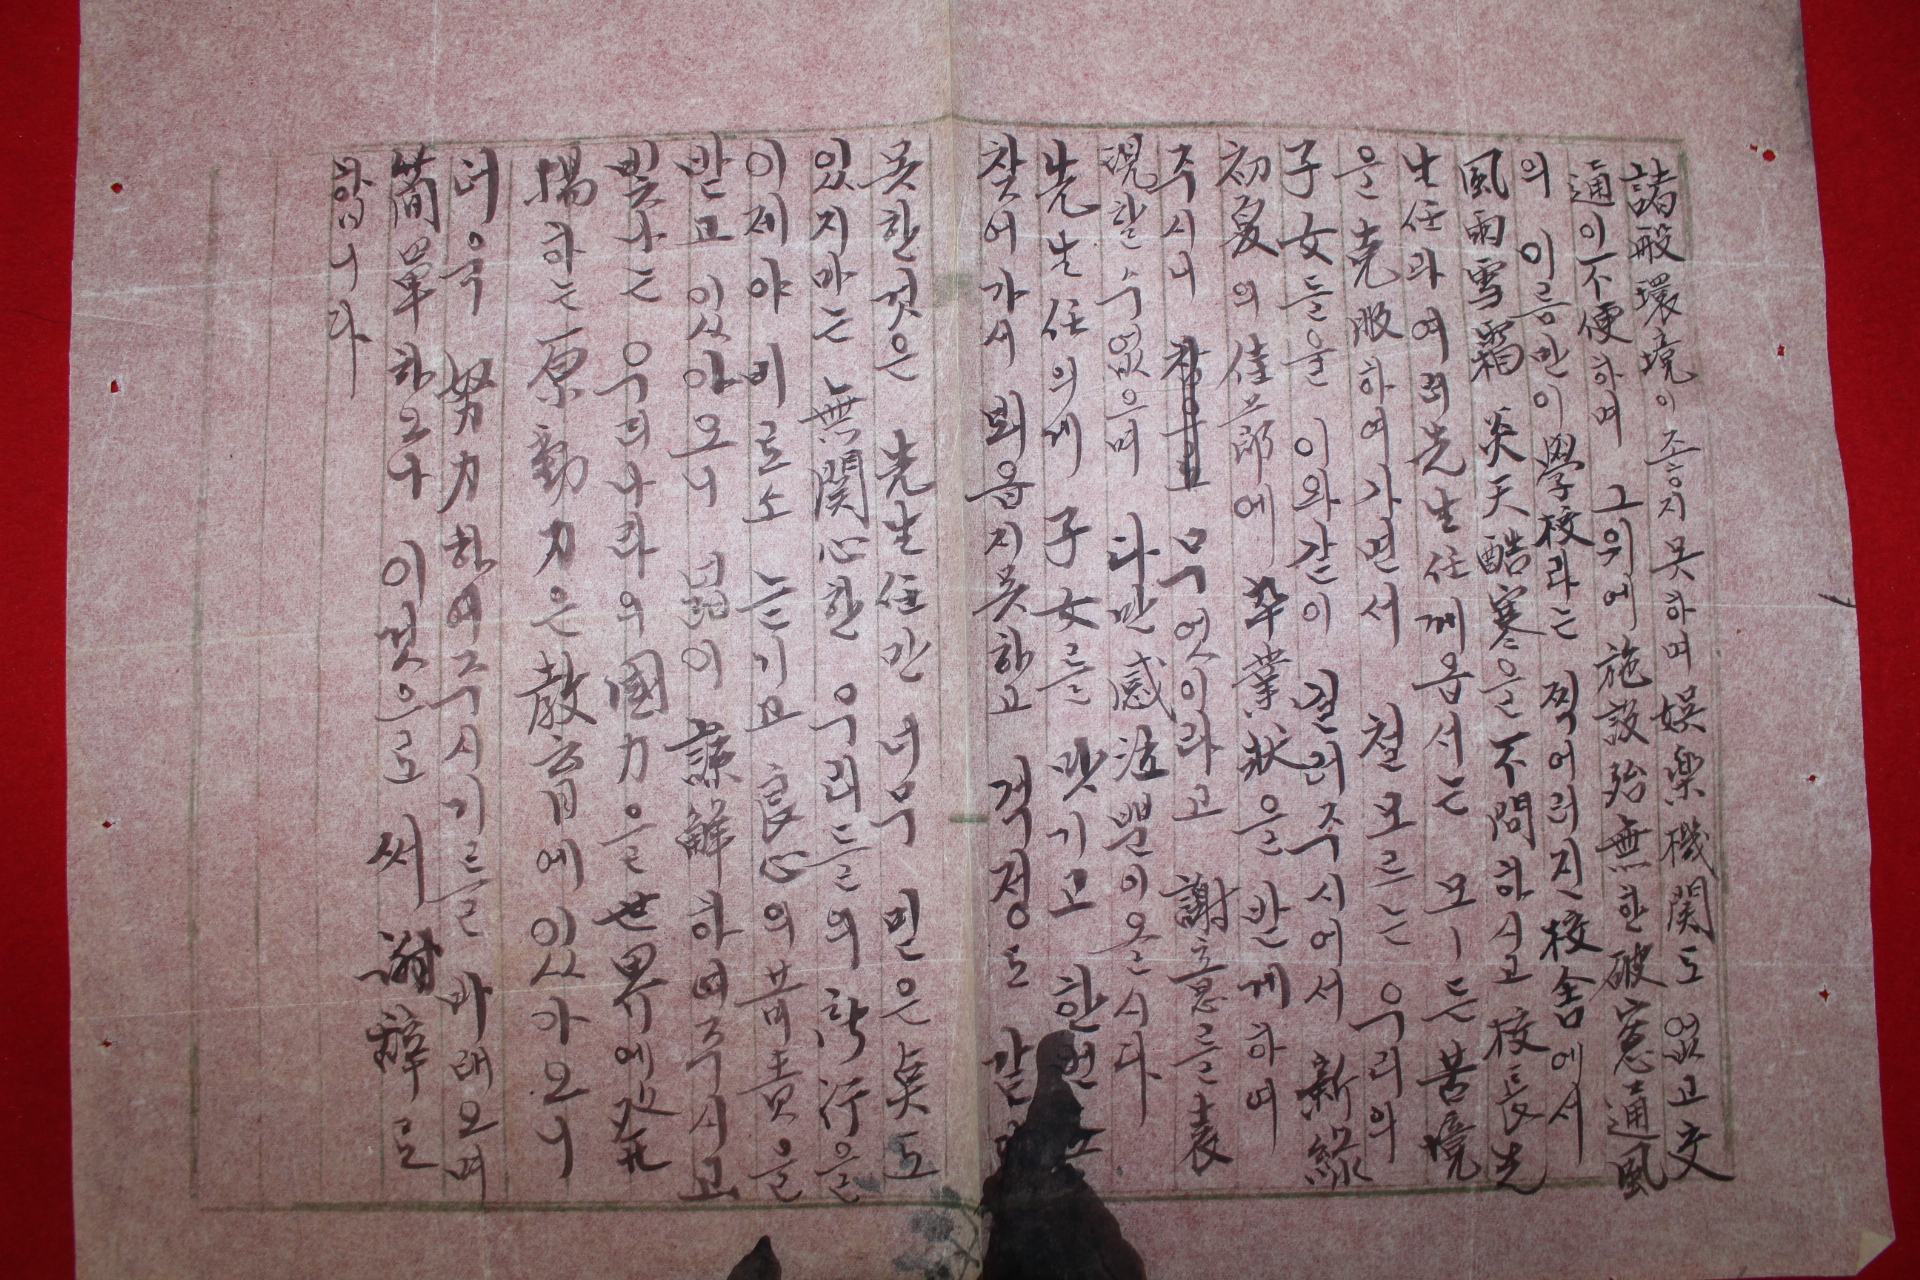 諸般環境이 조흐지못하며 娯楽機関도 없고 交
通이 不便하며 그위에 施設殆無한 破窓通風
의 이름만이 學校라는 찍어러진 校舍에서
風雨雪霜 炎天酷寒을 不問하시고 校長先
生任과 여러先生任께옵서는 모ー든 苦境
을 克服하여가면서 철모르는 우리의
子女들을 이와같이 길러주시어서 新綠
初夏의 佳節에 卒業狀을 받게하며
주시니 무엇이라고 謝意를 表
現할수없으며 다만 感泣뿐이올시다
先生任의게 子女를 맛기고 한번
찾어가서 뵈옵지못하고 걱정도 같
못한것은 先生任만 너무 믿은点도
있지마는 無関心한 우리들의 所行을
이제야 비로소 늣기고 良心의 苛責을
받고 있아오니 넓이 諒解하여주시고
빛나는 우리나라의 國力을 世界에 発
揚하는 原動力은 敎育에 있아오니
더욱 努力하여주시기를 바래오며
簡單하오나 이것으로써 謝辭로
합니다